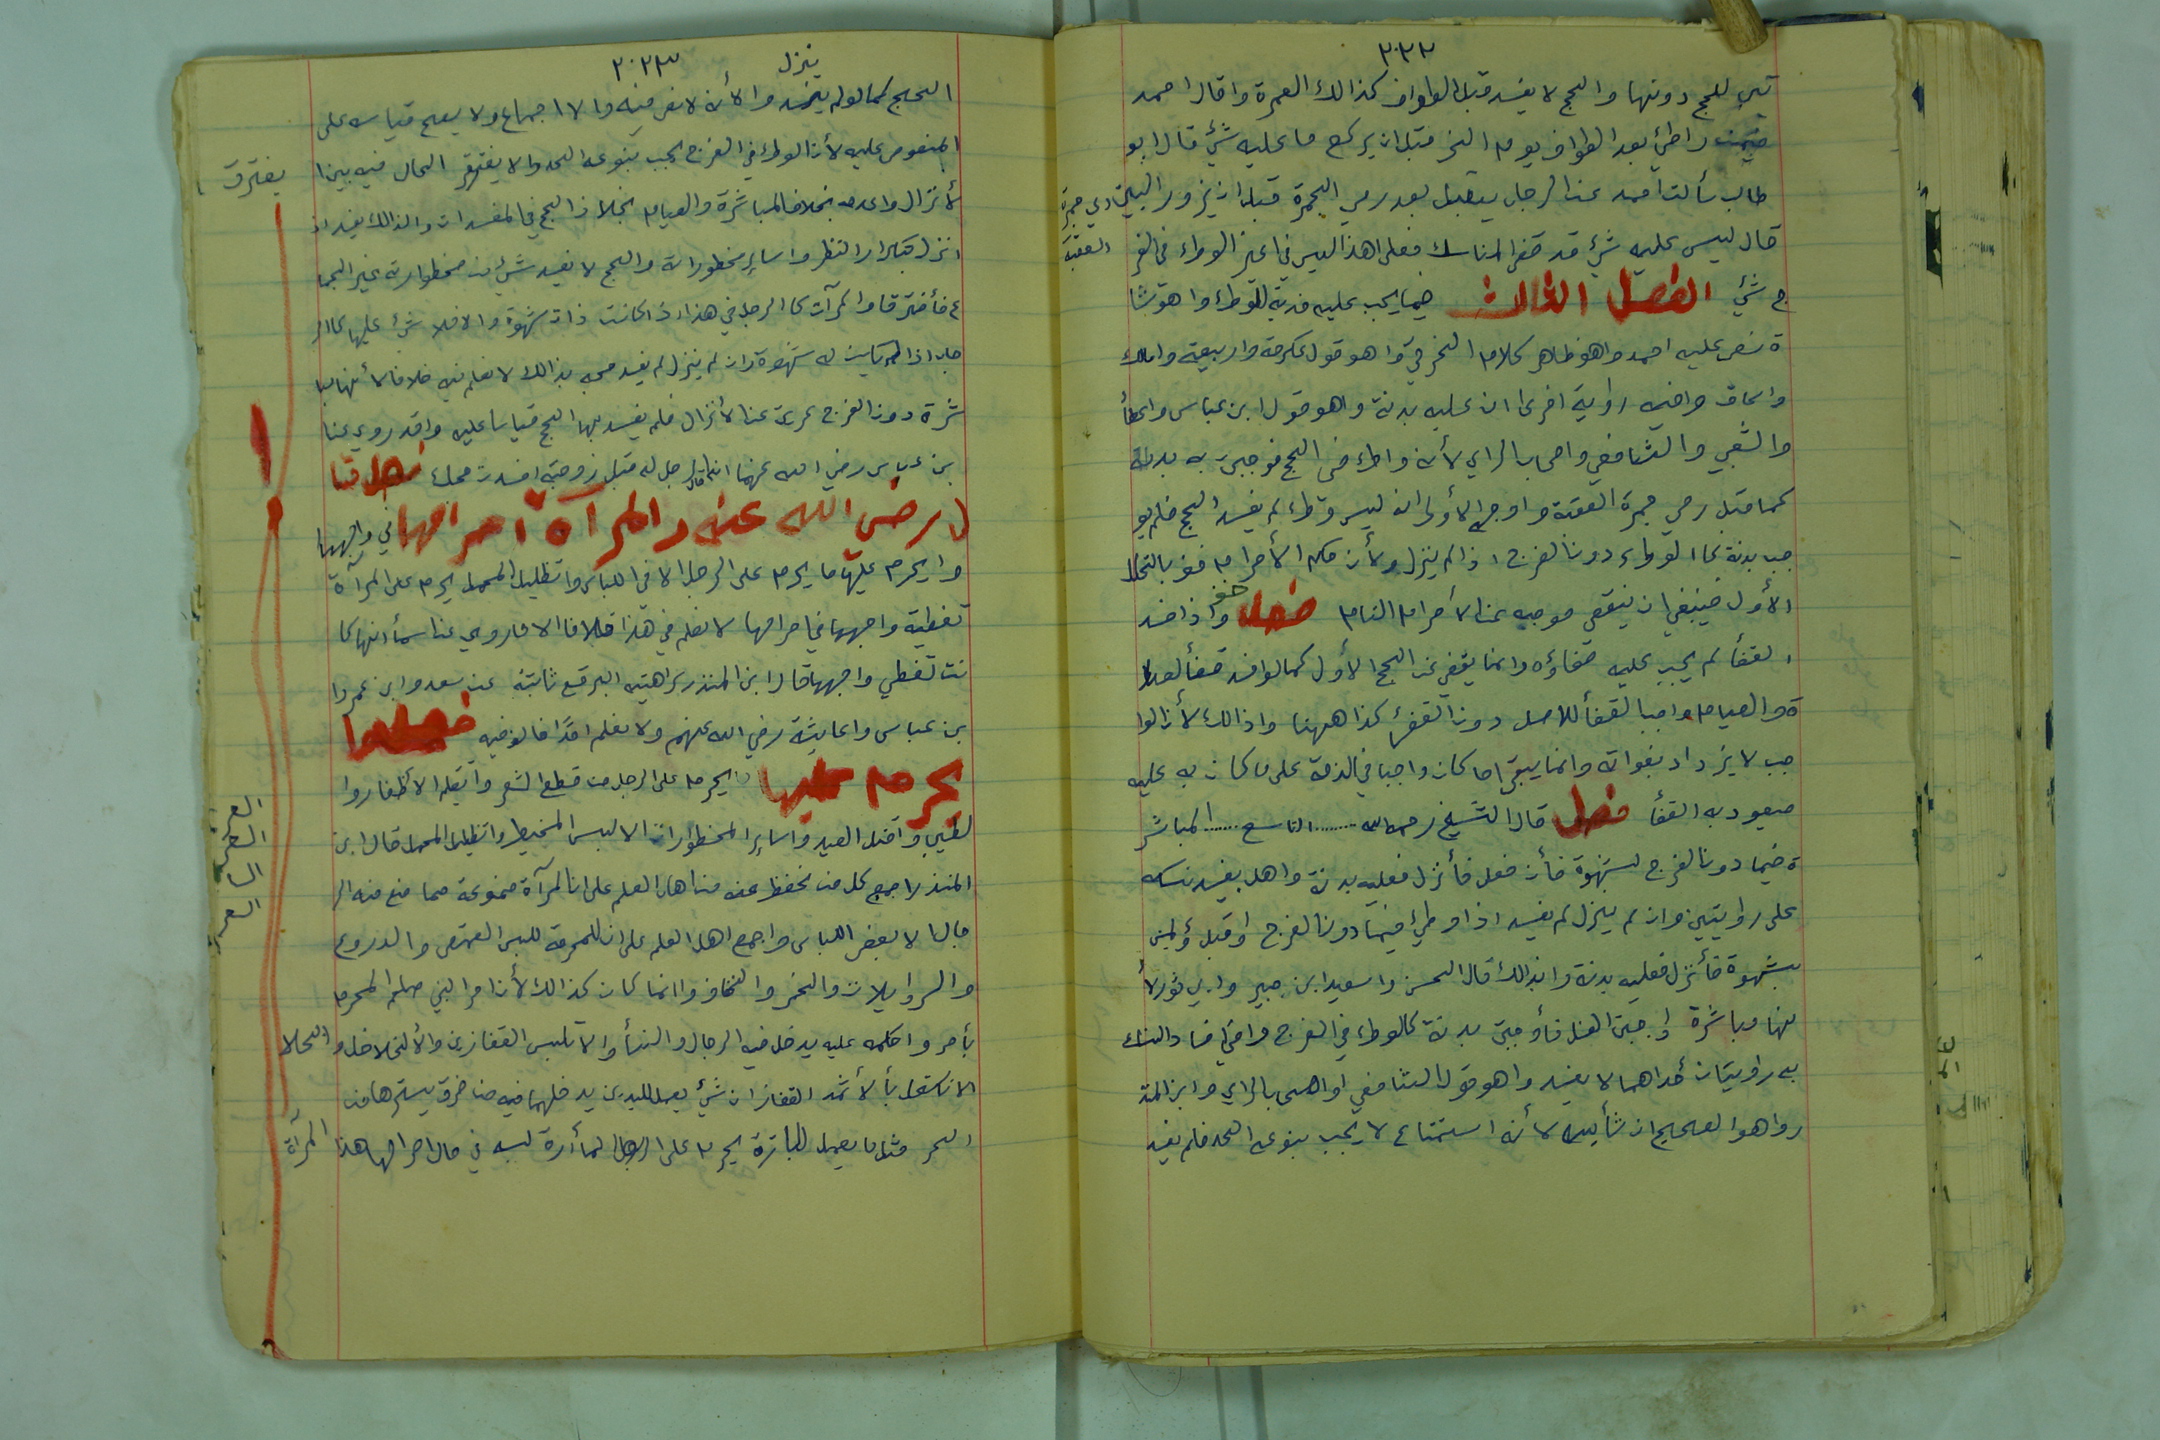 ٢٠٢٢
تي للحج دونها والحج لا يفسد قبل الطواف كذالك العمرة واقال احمد
فيمن واطئ بعد الطواف يوم النحر قبل ان يركع ما عليه شئ قال ابو
طالب سألت احمد عن الرجل يقبل بعد رمي الجمرة قبل ان يزور البيت
رمي جمرة
العقبة
قال ليس عليه شئ قد قضى المناسك فعلى اهذا ليس في غير الوطاء في الفر
ج شئ الفصل الثالث فيما يجب عليه فدية للوطء واهو شا
ة نص عليه احمد واهو ظاهر كلام الخرقي واهو قول عكرمة واربيعة وامالك
واسحاق وافيه رواية اخرى ان عليه بدنة واهو قول ابن عباس واعطأ
والشعبي والشافعي واصحاب الراي لأنه واطء في الحج فوجبت به بدنة
كما قبل رمي جمرة العقبة واوجه الأولى انه ليس وطء لم يفسد الحج فلم يو
جب بدنة كا الوطء دون الفرج اذا لم ينزل ولأن حكم الأحرام خف بالتحلل
الأول فينبغي ان ينقص موجبه عن الأحرام التام فصل واذا افسد
خف
القضأ لم يجب عليه قضاؤه وانما يقضي عن الحج الأول كما لو افسد قضأ الصلا
ة والصيام واجب القضأ للاصل دون القضئ كذا ههنا واذالك لأن الوا
جب لا يزداد بفواته وانما يبقى ما كان واجبا في الذمة على ما كان به عليه
فيعود به القضأ فصل قال الشيخ رحمه الله ........ التاسع ...... المباشر
ة فيما دون الفرج لشهوة فأن فعل فأنزل فعليه بدنة واهل يفسد نسكه
على روايتين وان لم ينزل لم يفسد اذا وطئ فيما دون الفرج او قبل او لمس
بشهوة فأنزل فعليه بدنة وابذالك قال الحسن واسعيد ابن جبير وابي ثور لأ
نها مباشرة اوجبت الغسل فأوجبت بدنة كالوطء في الفرج وافي افساد النسك
به روايتان أحداهما لا يفسد واهو قول الشافعي اواصحاب الراي وابن المنذ
رواهو الصحيح ان شأ الله لأنه استمتاع لا يجب بنوعه الحد فلم يفسد
٢٠٢٣
ينزل
الحج كما لو لم ينزل والأنه لا نص فيه ولا اجماع ولا يصح قياسه على
المنصوص عليه لأن الوطء في الفرج يجب بنوعه الحد والا يفتقر الحال فيه بين ا
يفترق
لأنزال واعدمه بخلاف المباشرة والصيام بخلاف الحج في المفسدات والذالك يفسد اذ
انزل بتكرار النظر واساىر محظوراته والحج لا يفسد شئ من محظوارته غير الجما
ع فأفترقا والمرآت كا الرجل في هذا اذا كانت ذات شهوة والا فلا شئ عليها كا الر
جل اذا لم يكن له شهوة وان لم ينزل لم يفسد حجه بذالك لا نعلم فيه خلافا لأنها مبا
شرة دون الفرج عرية عن الأنزال فلم يفسد بها الحج قياسا عليه واقد روي عن ا
بن عباس رضي الله عنهما انه قال لرجل له قبل زوجته افسدت حجك فصل قا
ل رضي الله عنه والمرآة احرامها في واجهها
وا يحرم عليها ما يحرم على الرجل الا في اللباس وا تظليل المحمل يحرم على المرآة
تغطية واجهها في احرامها لا نعلم في هذا خلافا الا ما روي عن اسمأ انها كا
نت تغطي واجهها قال ابن المنذر كراهتيه البرقع ثابتة عن سعد وابن عمر وا
بن عباس واعايشة رضي الله عنهم ولا نعلم احدًا خالف فيه فصل وا
يحرم عليها ما يحرم على الرجل من قطع الشعر وا تقليم الأظفار وا
لطيب وا قتل الصيد واساىر المحظورات الا لبس المخيط وا تظليل المحمل قال ابن
المنذر اجمع كل من نحفظ عنه من اهل العلم على ان المرآة ممنوعة مما منع منه الر
جال الا بعض اللباس واجمع اهل العلم على ان للمحرمة للبس القمص والدروع
والسراويلات والخمر والخفاف واانما كان كذالك لأن امر النبي صلعم المحرم
بأمر واحكمه عليه يدخل فيه الرجال والنسأ والا تلبس القفازين والأ الخلاخل والخلا
الا ... بأ لأثمد القفازان شئ يعمل لليدين يدخلهما فيه من خرق يسترهما من
الحر مثل ما يعمل للبازة يحرم على الرجل المأرة لبسه في حال احرامها هذا المرآة